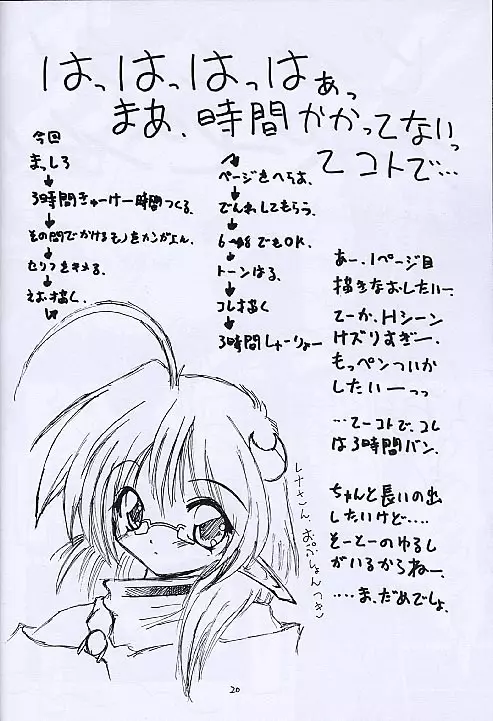 はっはっはっはぁっ
まあ、時間かかってないっ
てコトで…
今回
まっしろ
3時間きゅーけー時間つくる。
その間でかけるモノをカンがえん。
せりフをキメる。
えお描く。
ページをへらす。
でんわしてもらう。
6〜8でもOK.
トーンはる。
コレ描く
3時間しゅーりょー
あー、1ページ目
描きなおしたいー、
てーか、Hシーン
ケズりすぎー、
もっペンついか
したいーっっ
…てーコトで、コレ
は3時間バン。
ちゃんと長いの出
したいけど‥‥
そーとーのゆるし
がいるからねー、
‥‥ま、だめでしょ。
レナさん、おぷしょんつき
20